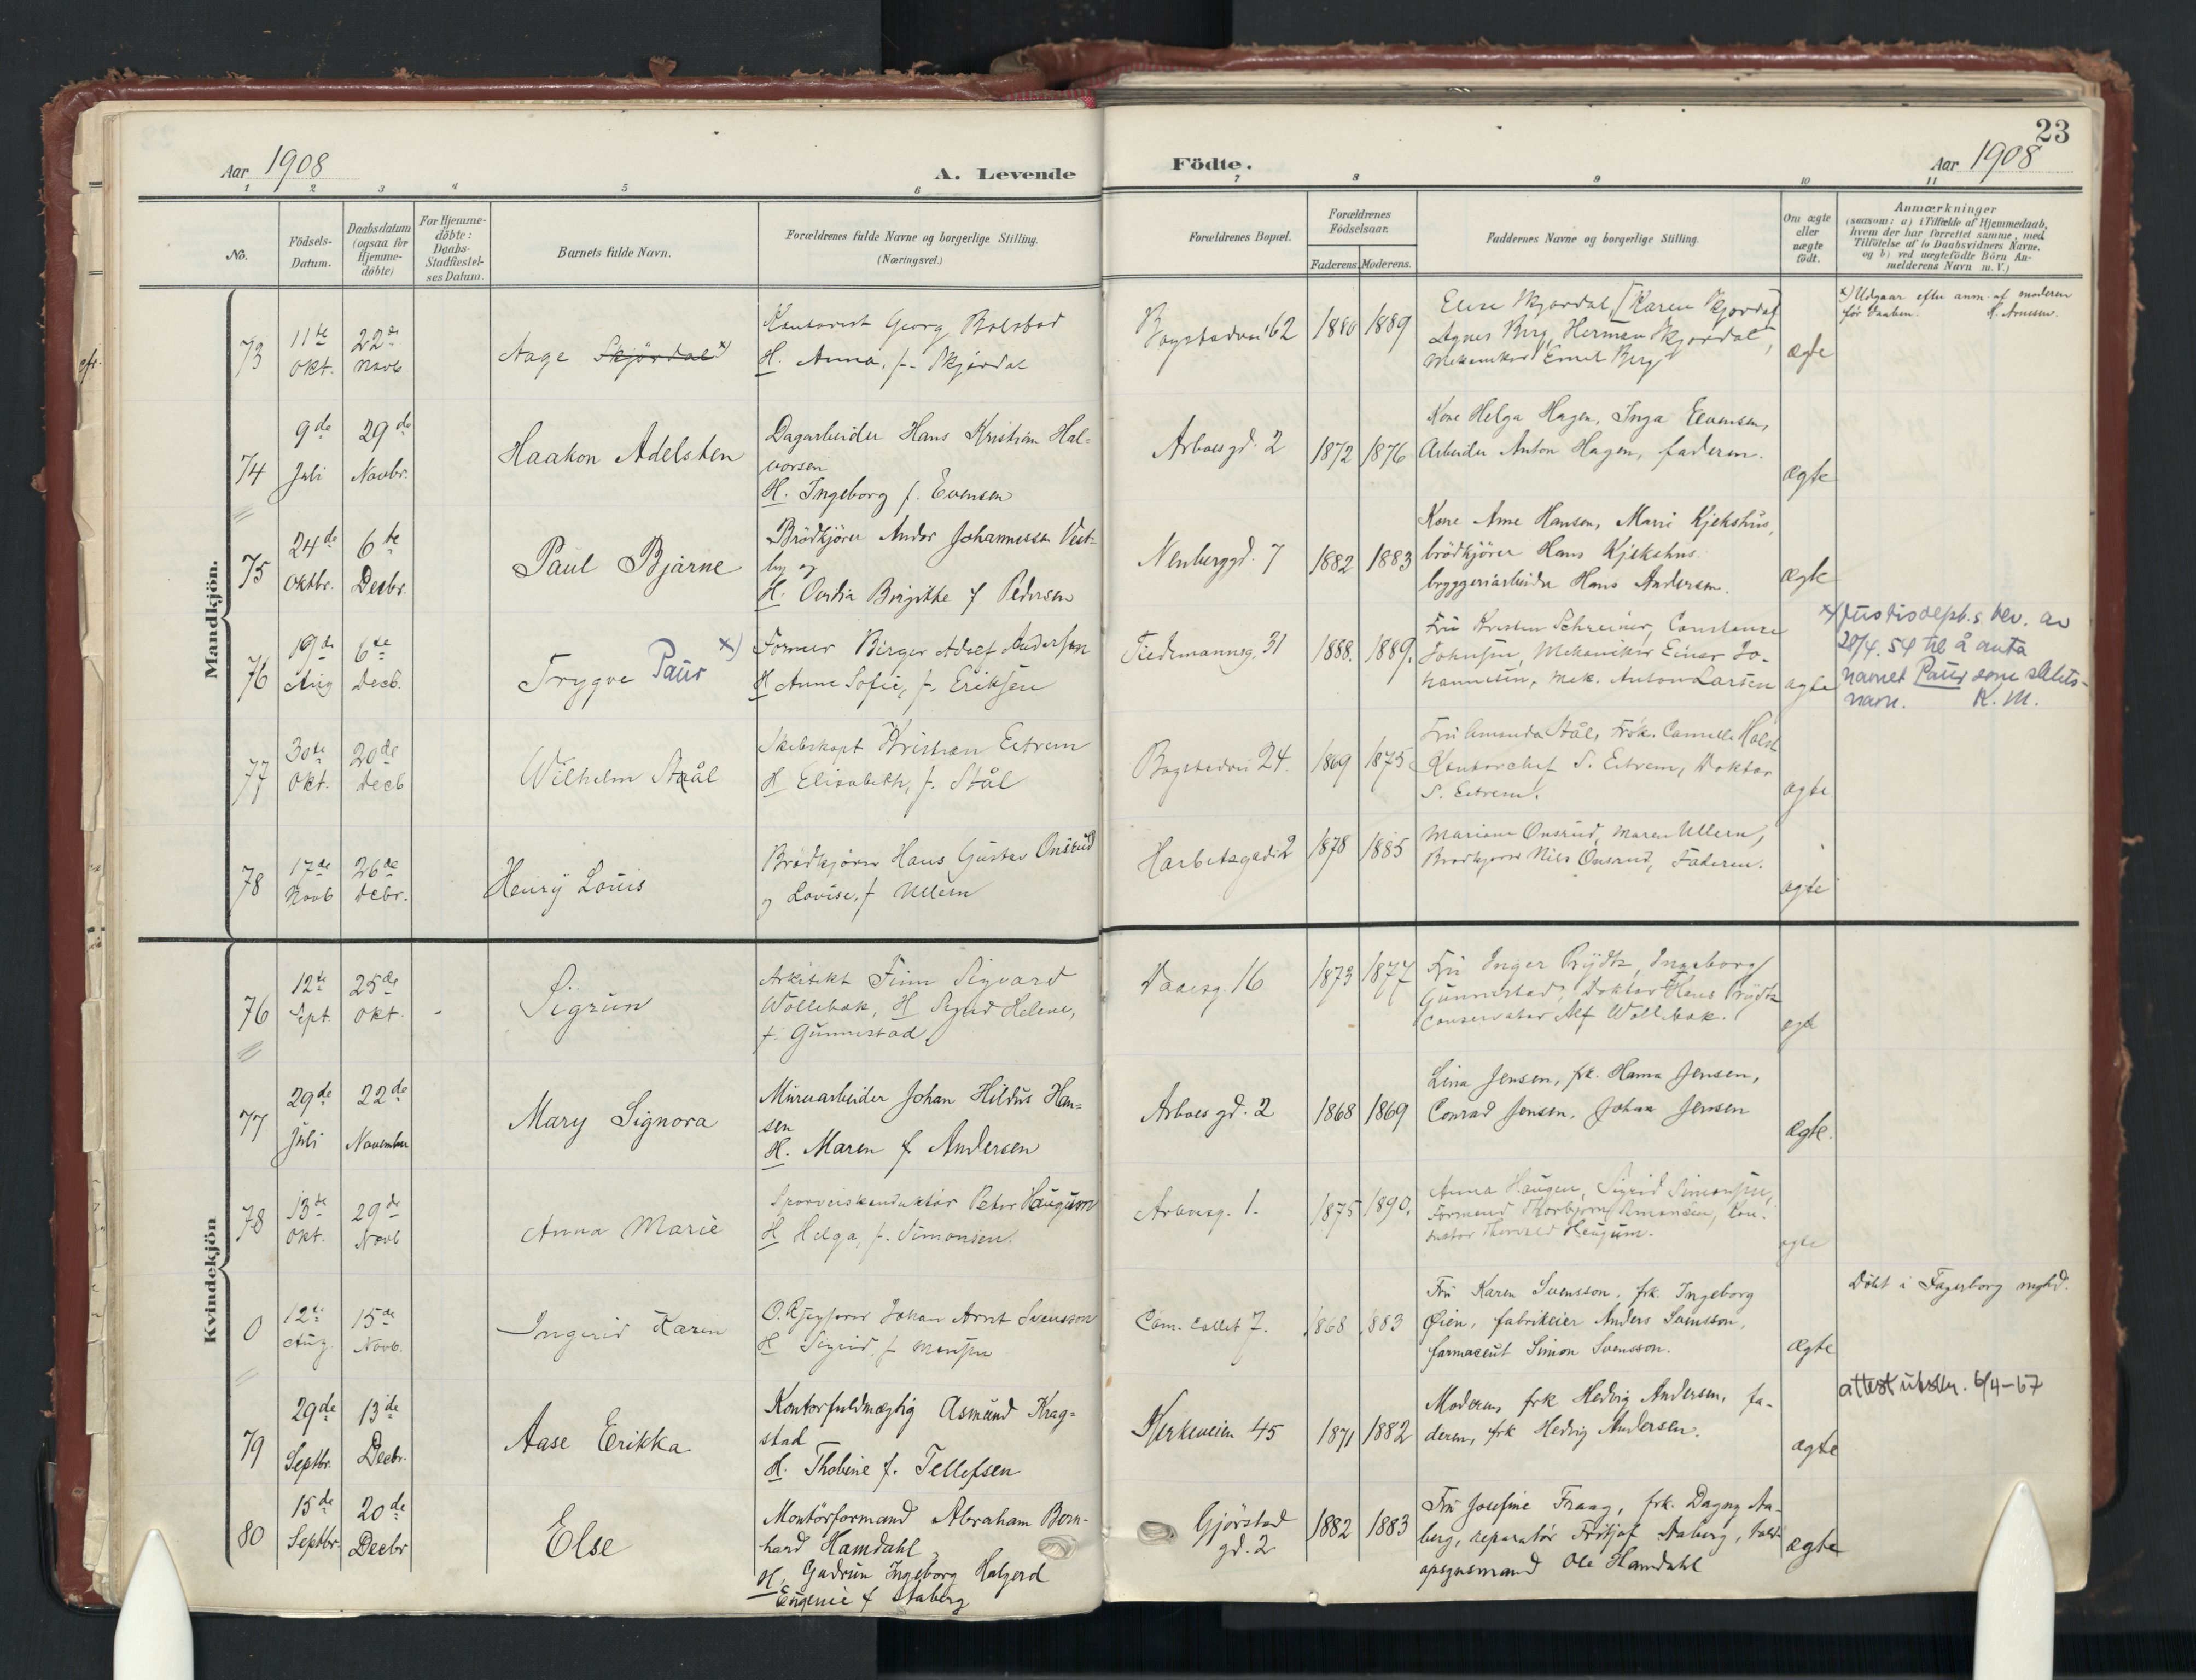 23
Aar 1908
A. Levende
Födte.
Aar 1908
1 2 3 4 5 6 7 8 9 10 11
No.
Födsels-
Datum.
Daabsdatum
(ogsaa for
Hjemme-
döbte)
For Hjemme-
döbte:
Daabs-
Stadfæstel-
ses Datum.
Barnets fulde Navn.
Forældrenes fulde Navne og borgerlige Stilling.
(Næringsvei.)
Forældrenes Bopæl.
Forældrenes
Födselsaar.
Faderens. Moderens.
Faddernes Navne og borgerlige Stilling.
Om ægte
eller
uægte
födt.
Anmærkninger
(saasom: a) i Tilfælde af Hjemmedaab,
hvem der har forrettet samme, med
Tilföielse af to Daabsvidners Navne,
og b) ved uægtefödte Börn An-
melderens Navn m. V.)
Mandkjön.
73
11te
Okt.
22de
Novb
Aage Skjördal x)
Kontorist Georg Bolstad
H. Anna, f. Skjördal
Bogstadvei 62
1880
1889
Elise Skjordal, Karen Skjordal
Agnes Berg, Herman Skjordal,
Mekaniker Emil Berg
ægte
x) Udgaar efter anm. af moderen
før daaben. K. Arnesen.
74
9de
Juli
29de
Novbr.
Haakon Adelsten
Dagarbeider Hans Kristian Hal-
vorsen
H. Ingeborg f. Evensen
Arboesgd. 2
1872
1876
Kone Helga Hagen, Inga Evensen,
Arbeider Anton Hagen, faderen.
ægte
75
24de
Oktbr.
6te
Decbr.
Paul Bjarne
Brödkjörer Andor Johannessen Vest-
by og
H. Ovidia Birgitte f. Pedersen
Nenberggd. 7
1882
1883
Kone Arne Hansen, Marie Kjekshus,
brödkjörer Hans Kjekshus.
bryggeriarbeider Hans Andersen.
ægte
76
19de
Aug
6te
Decb.
Trygve Paus x)
Former Birger Adolf Andersen
H Anne Sofie, f. Eriksen
Tiedemannsg. 31
1888.
1889.
Fru Kirsten Schreiner, Constance
Johnsen, Mekaniker Einar Jo-
hannesen, mek. Anton Larsen
ægte
x) Justisdept.s bev. av
28/4. 54 til å anta
navnet Paus som slekts-
navn. K. M.
77
30te
Okt.
20de
Decb
Wilhelm Stål
Skibskapt Kristian Eitrem
H Elisabeth, f. Stål
Bogstadvei 24.
1869
1875
Fru Amanda Stål, Frök. Camilla Holst
Kontorchef S. Eitrem, Doktor
S. Eitrem.
ægte
78
17de
Novb
26de
Decbr.
Henry Louis
Brödkjörer Hans Gustav Onsrud
og Lovise, f Ullern
Harbitzgade 2
1878
1885
Mariane Onsrud, Maren Ullern,
Brödkjører Nils Onsrud, Faderen.
ægte
Kvindekjön
76
12te
Sept.
25de
Okt.
Sigrun
Arkitekt Finn Sigvard
Wollebæk, H Sigrid Helene,
f. Gunnestad
Daaesg. 16
1873
1877
Fru Inger Prydtz, Ingeborg
Gunnestad, Doktor Hans Prydtz
Conservator Alf Wollebæk.
ægte
77
29de
Juli
22de
November
Mary Signora
Murerarbeider Johan Hildus Han-
sen
H. Maren f Andersen
Arboesgd. 2
1868
1869
Lina Jensen, frk. Hanna Jensen,
Conrad Jensen, Johan Jensen
ægte.
78
13de
Okt.
29de
Novb
Anna Marie
Sporveiskonduktör Peter Haugum
H Helga, f. Simonsen.
Arboesg. 1.
1875
1890.
Anna Haugen, Sigrid Simonsen,
Formand Thorbjørn Simonsen, Kon-
duktør Thorvald Haugum.
ægte
0
12te
Aug.
15de
Novb.
Ingrid Karen
Johan Arnt Svensson
H Sigrid, f
Cam. Collet 7.
1868
1883
Fru Karen Svensson, frk. Ingeborg
Øien, fabrikeier Anders Svensson,
farmaceut Simon Svensson.
ægte
Döbt i Fagerborg mghd.
79
29de
Septbr.
13de
Decbr.
Aase Erikka
Kontorfuldmægtig Asmund Krag-
stad
H. Thobine f. Tellefsen
Kjerkeveien 45
1871
1882
Moderen, frk Hedvig Andersen, fa-
deren, frk Hedvig Andersen.
ægte
attest utstr. 6/4-57
80
15de
Septbr.
20de
Decbr
Else
Montörformand Abraham Bern-
hard Hamdahl
H. Gudrun Ingeborg Halgerd
Eugenie f Aaberg
Gjörstad
gd. 2
1882
1883
Fru Josefine Fraag, frk. Dagny Aa-
berg, reparatör Fritjof Aaberg, told-
opsynsmand Ole Hamdahl
ægte